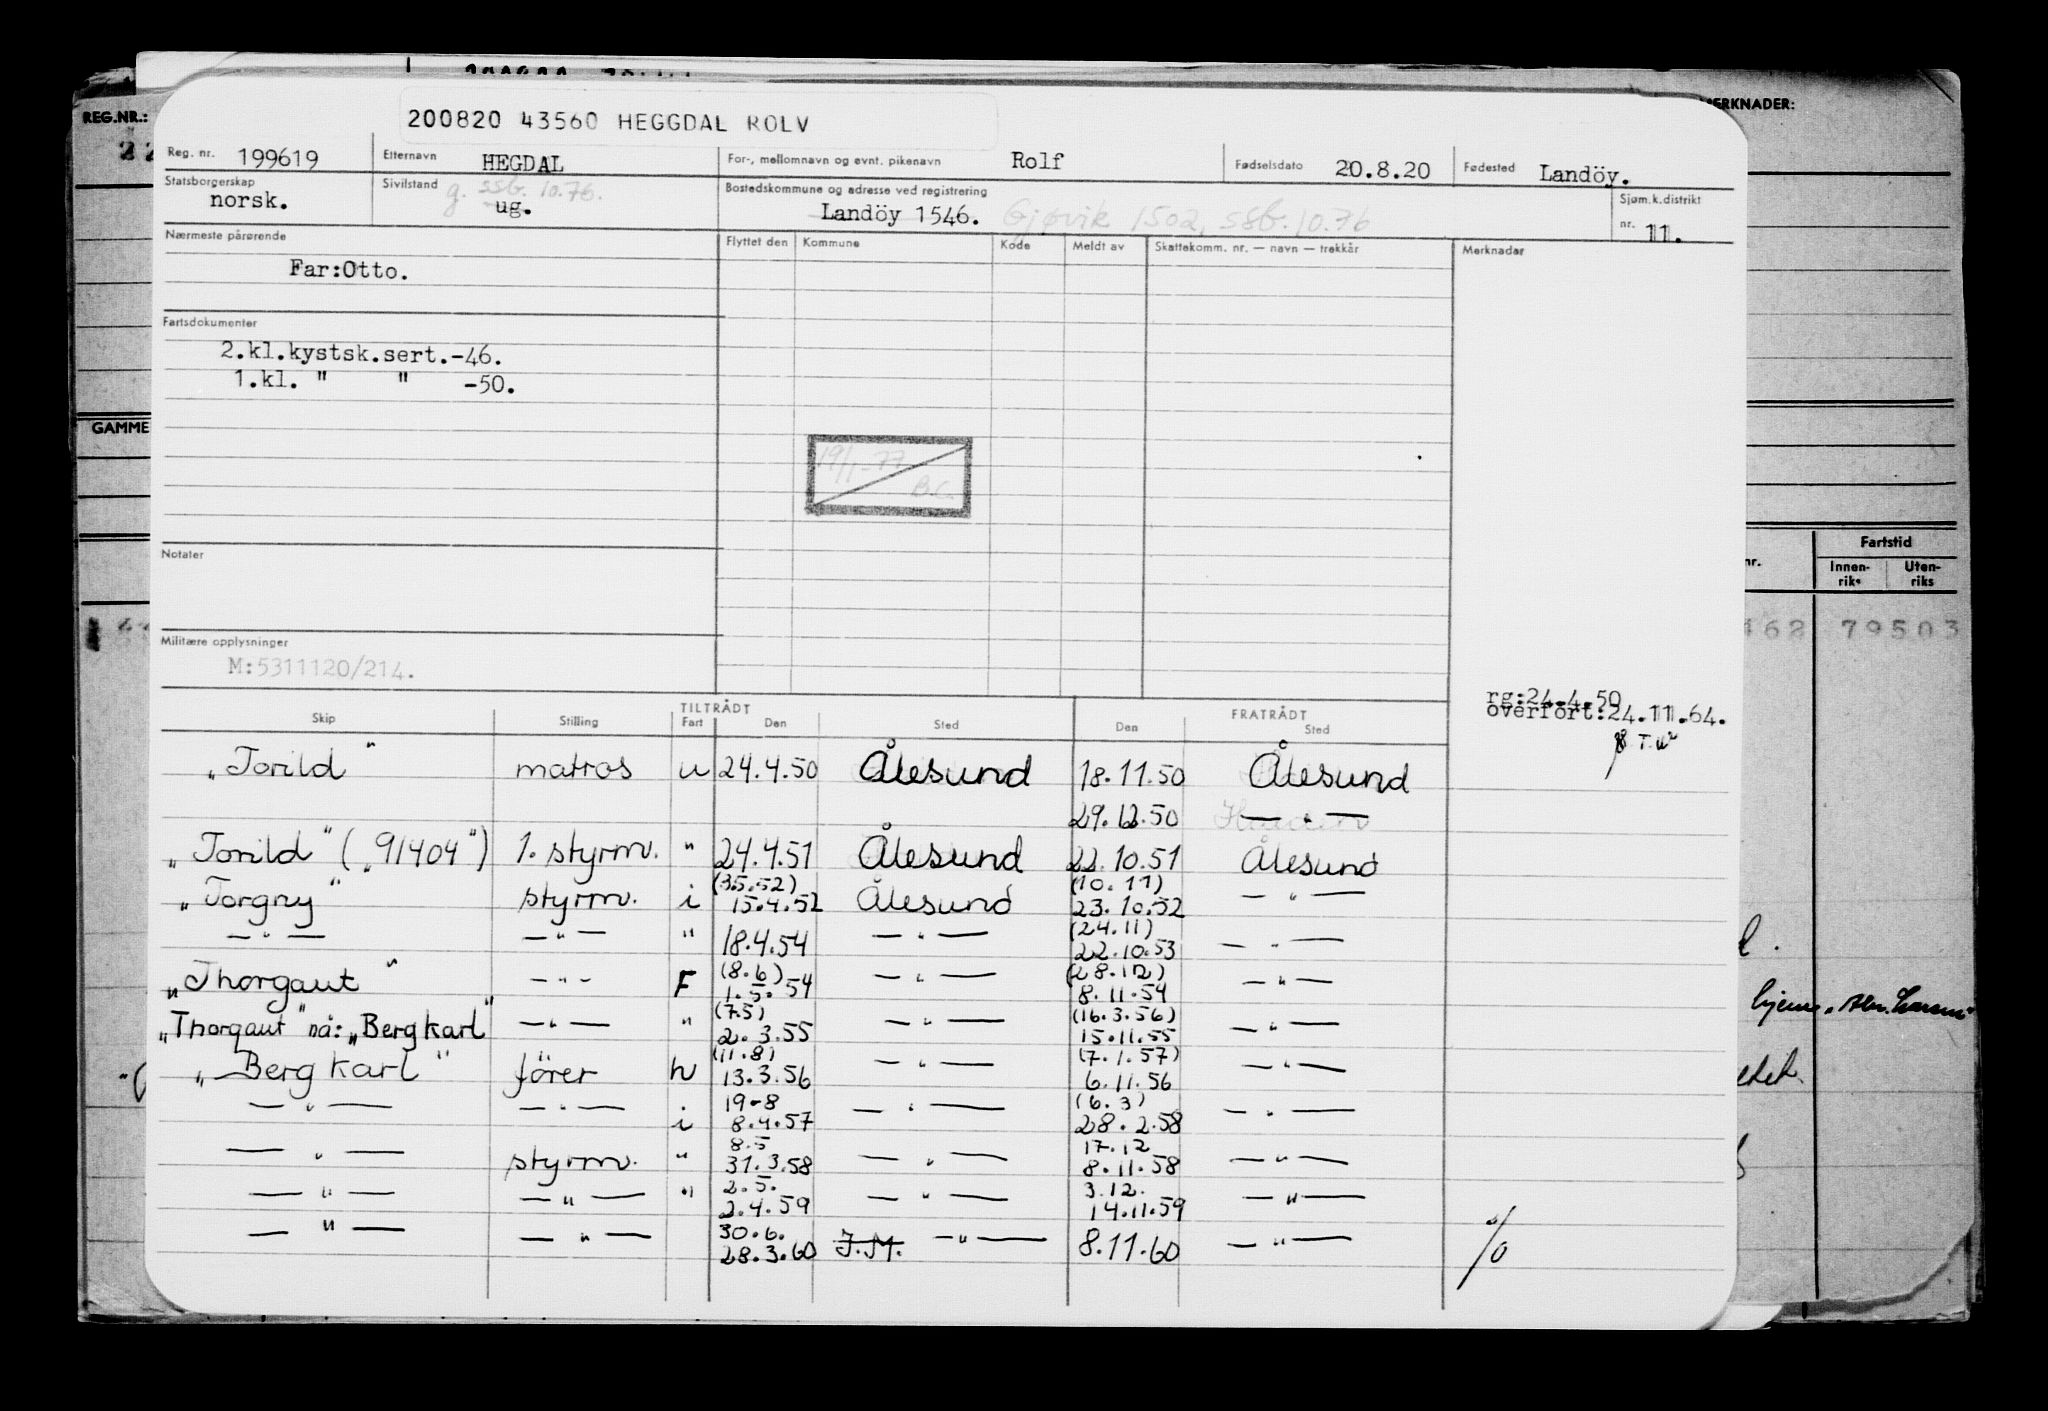 REG.NR.:
MERKNADER:
200820 43560 HEGGDAL ROLV
Reg. nr. 199619 Etternavn HEGDAL For-, mellomnavn og evnt. pikenavn Rolf Fødselsdato 20.8.20 Fødested Landöy.
Statsborgerskap norsk. Sivilstand g. ssb. 10.76. ug. Bostedskommune og adresse ved registrering Landöy 1546. Gjøvik 1502, ssb. 10.76 Sjøm.k.distrikt nr. 11.
Nærmeste pårørende Flyttet den Kommune Kode Meldt av Skattekomm. nr. — navn — trekkår Merknader
Far:Otto.
Fartsdokumenter
2.kl.kystsk.sert.-46.
1.kl. " " -50.
GAMME
19/1-77
B.C.
Notater
Fartstid
nr. Innen-riks Uten-riks
Militære opplysninger
M:5311120/214.
79503
rg:24.4.50
overført:24.11.64.
TILTRÅDT FRATRÅDT
Skip Stilling Fart Den Sted Den Sted
"Torild" matros u 24.4.50 Ålesund 18.11.50 Ålesund
29.12.50 — " —
"Torild" ("91404") 1. styrm. " 24.4.51 Ålesund 22.10.51 Ålesund
(3.5.52) (10.11)
"Torgny" styrm. i 15.4.52 Ålesund 23.10.52 — " —
(24.11)
— " — — " — " 18.4.54 — " — 22.10.53 — " —
(8.6) (28.12)
"Thorgaut" — " — F 1.5.54 — " — 8.11.54 — " —
(7.5) (16.3.56)
"Thorgaut" nå: "Berg karl" — " — " 2.3.55 — " — 15.11.55 — " —
(11.8) (7.1.57)
"Berg karl" förer h 13.3.56 — " — 6.11.56 — " —
19-8 (6.3)
— " — — " — i 8.4.57 — " — 28.2.58 — " —
8.5 17.12
— " — styrm. " 31.3.58 — " — 8.11.58 — " —
2.5. 3.12.
— " — — " — " 2.4.59 — " — 14.11.59 — " —
30.6.
— " — — " — 28.3.60 J.M. — " — 8.11.60 — " —